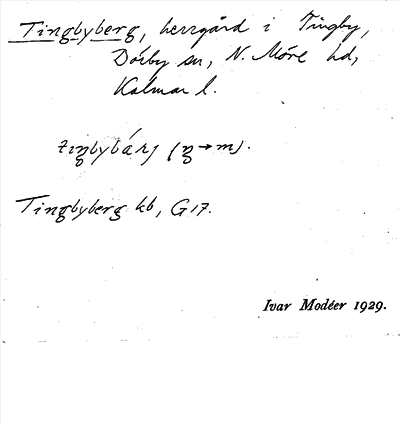 Tingbyberg, herrgård i Tingby,
Dörby sn, N. Möre hd,
Kalmar l.
Tingbyberg kb, G17.
Ivar Modéer 1929.